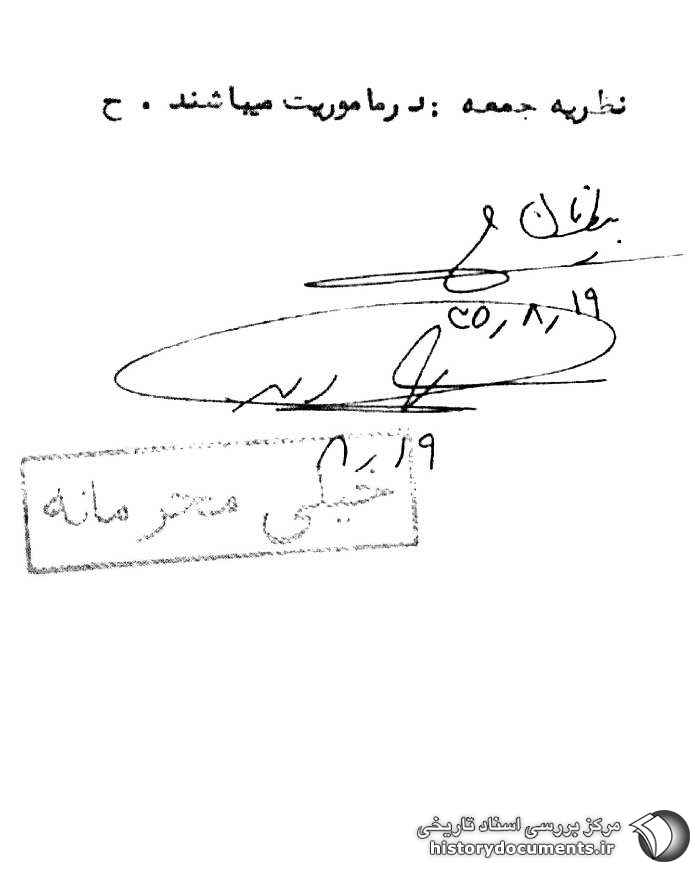 نظریه جمعه : درماموریت میباشند . ح
۲۵٫۸٫۱۹
۸٫۱۹
خیلی محرمانه
مرکز بررسی اسناد تاریخی
historydocuments.ir